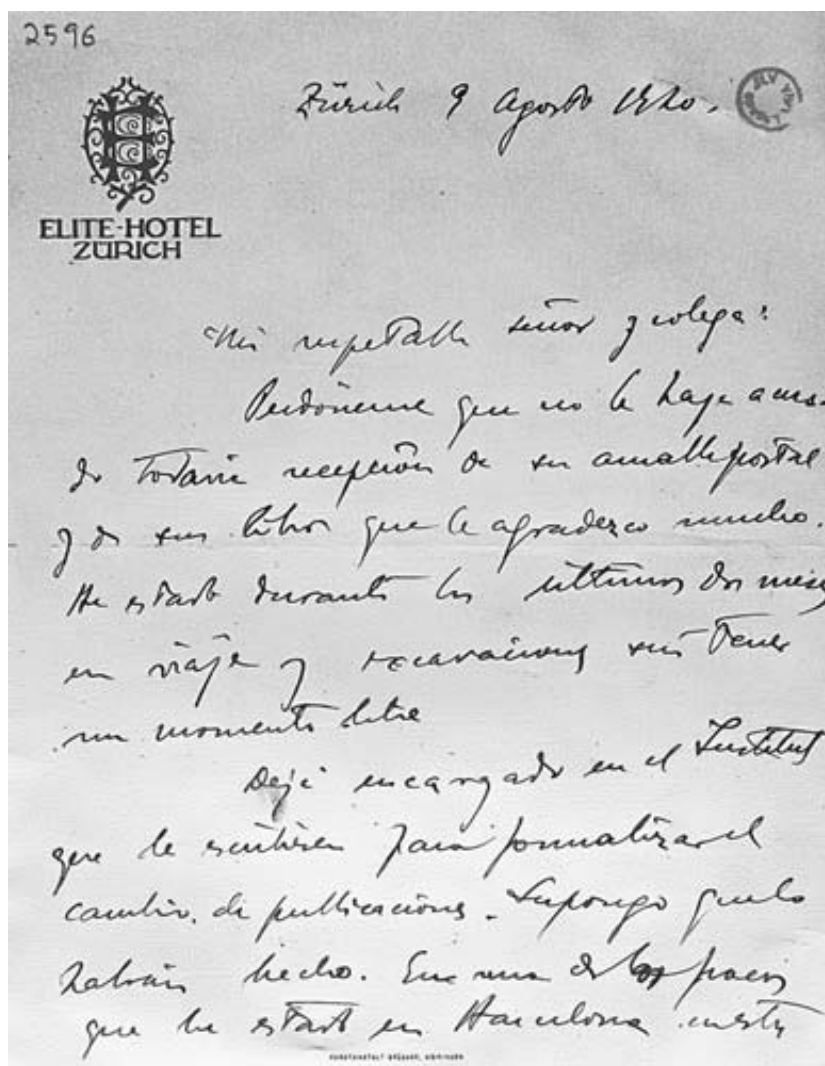 2596
Zürich 9 Agosto 1920.
ELITE-HOTEL
ZÜRICH
Mi respetable señor y colega:
Perdóneme que no le haya acusa-
do todavía recepción de su amable postal
y de sus libros que le agradezco mucho.
He estado durante los últimos dos meses
en viaje y excavaciones sin tener
un momento libre
Dejé encargado en el Institut
que le escribiesen para formalizar el
cambio de publicaciones. Supongo que lo
habrán hecho. En uno de los
que he estado en Barcelona